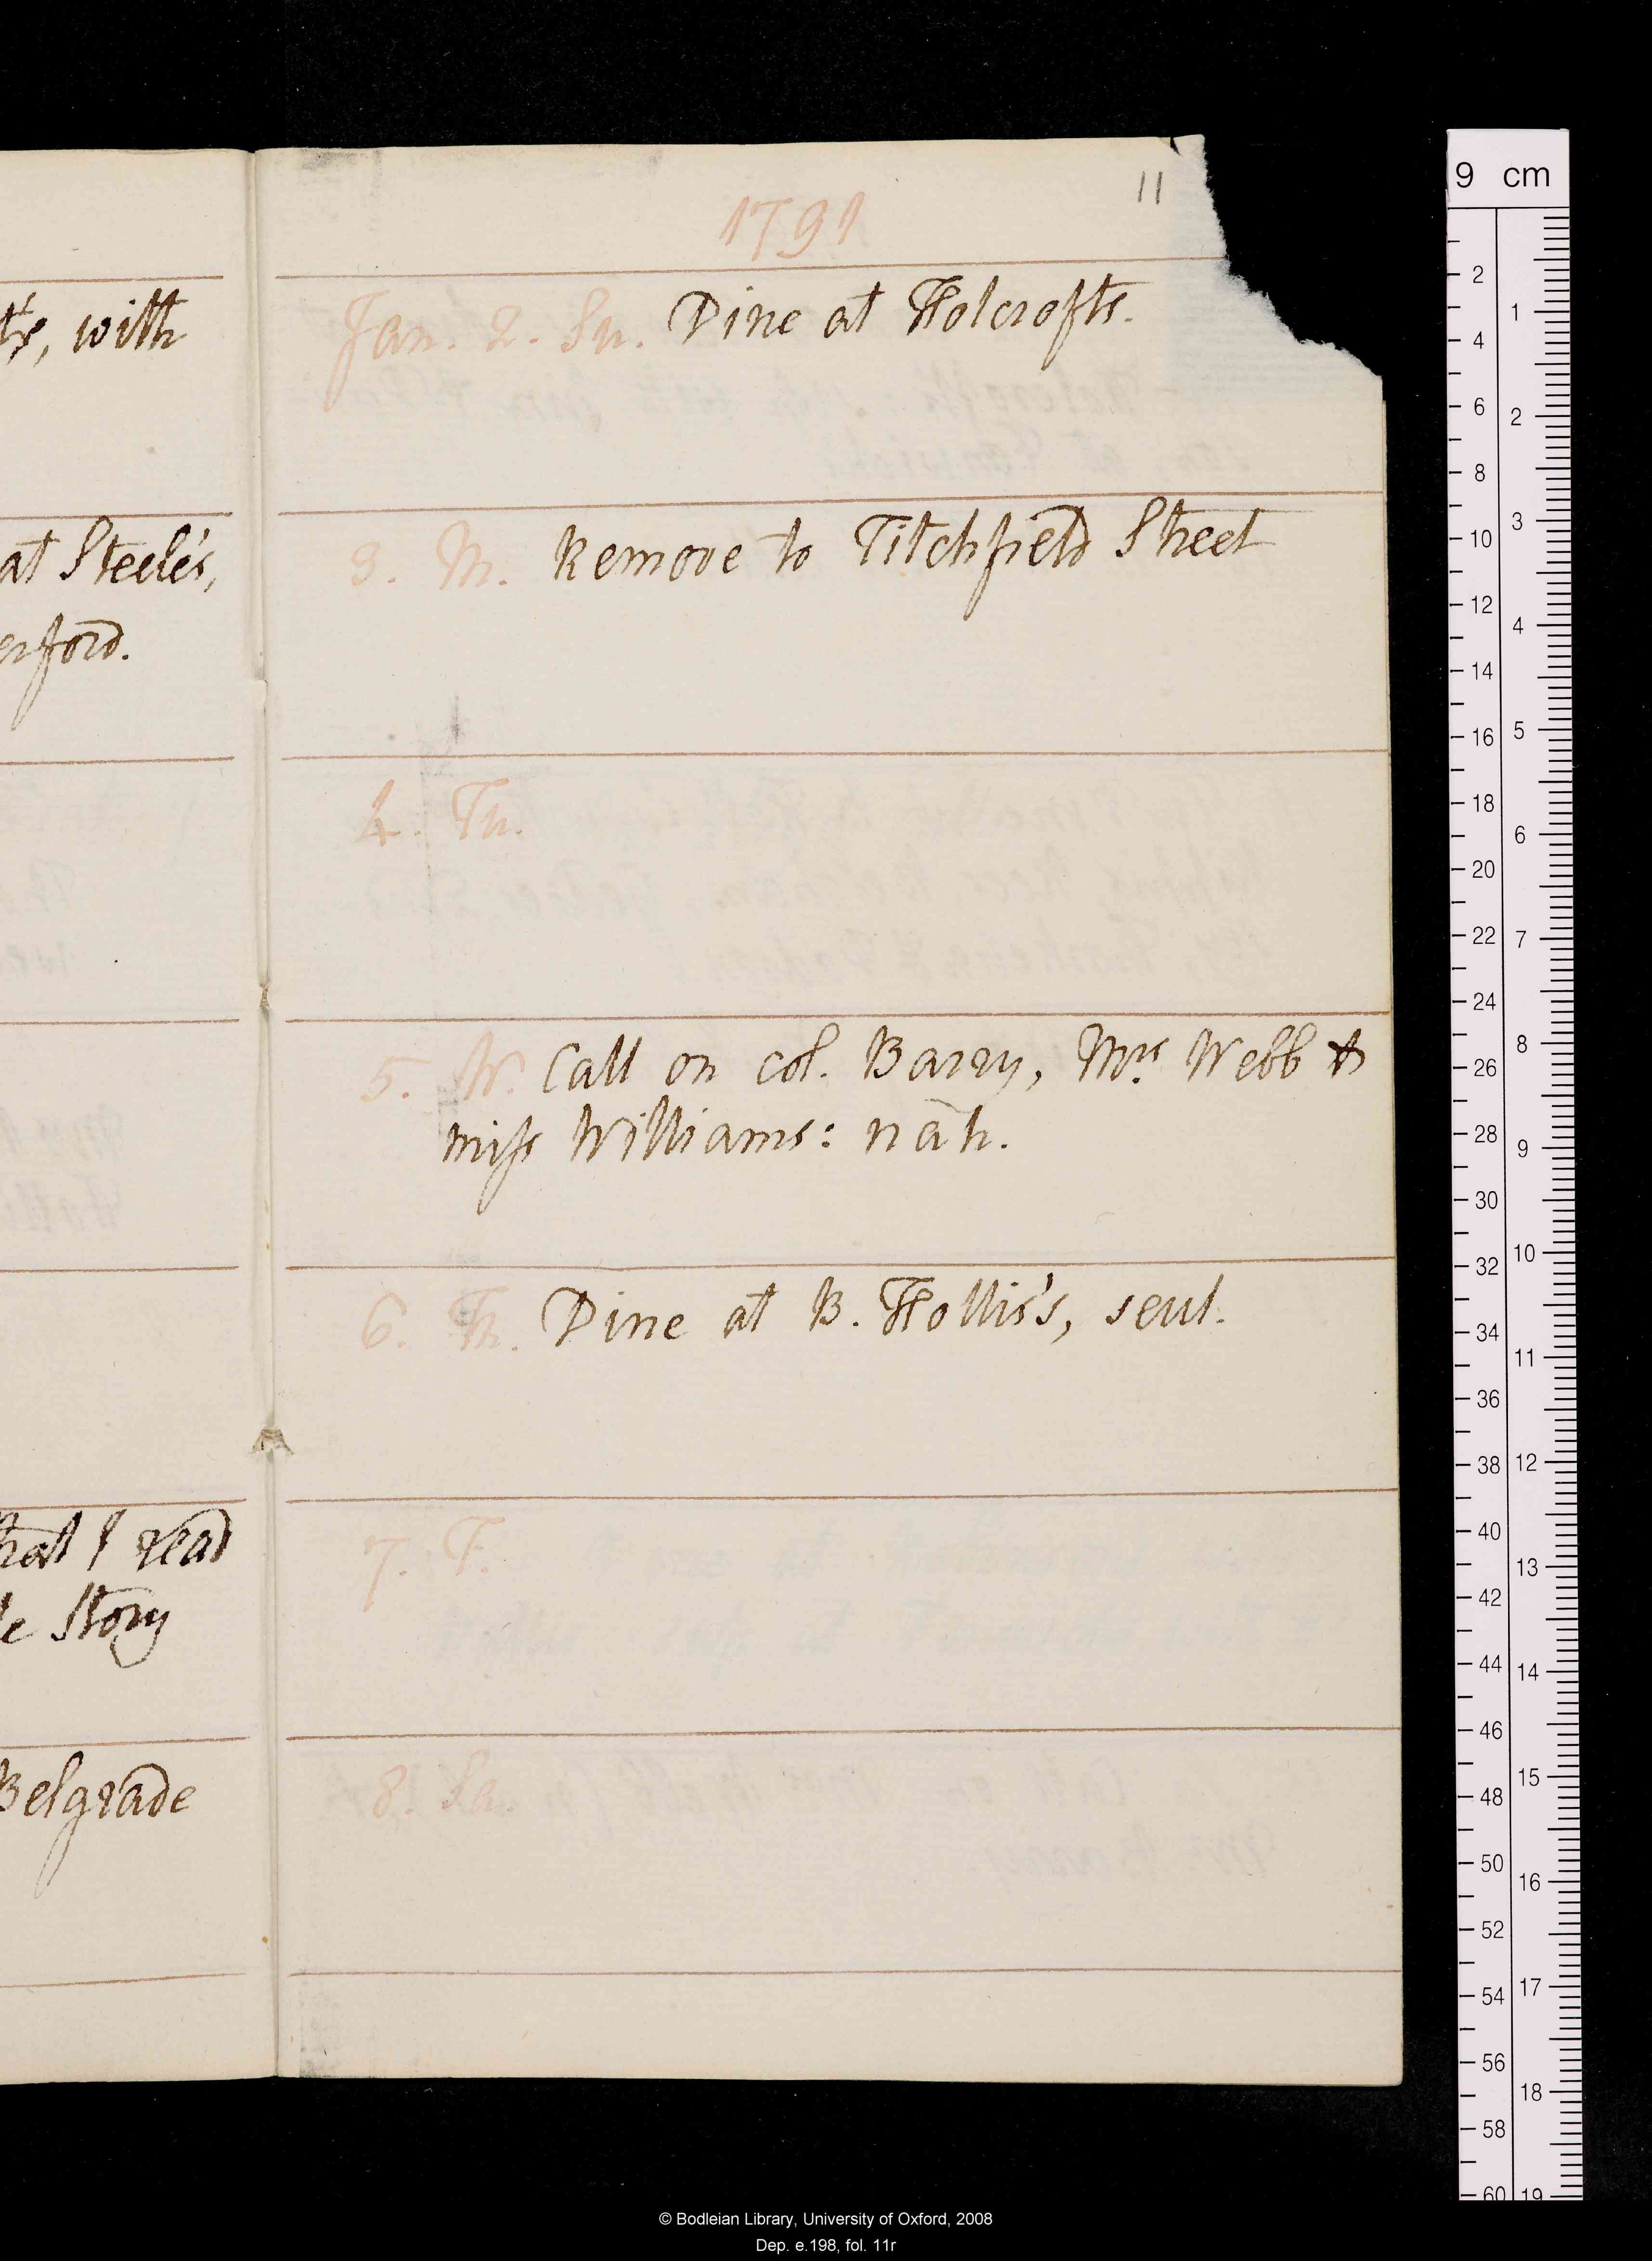 11
1791
Jan. 2. Su. Dine at Holcrofts.
3. M. Remove to Titchfield Street
4. Tu.
5. W. Call on col. Barry, Mrs Webb &
miss Williams: nāh.
6. Th. Dine at B. Hollis's, seul.
7. F.
8. Sa.
with
at Steele's,
erford.
hat I read
Story
Belgrade
9 cm
2
4
6
8
10
12
14
16
18
20
22
24
26
28
30
32
34
36
38
40
42
44
46
48
50
52
54
56
58
60
1
2
3
4
5
6
7
8
9
10
11
12
13
14
15
16
17
18
19
© Bodleian Library, University of Oxford, 2008
Dep. e.198, fol. 11r